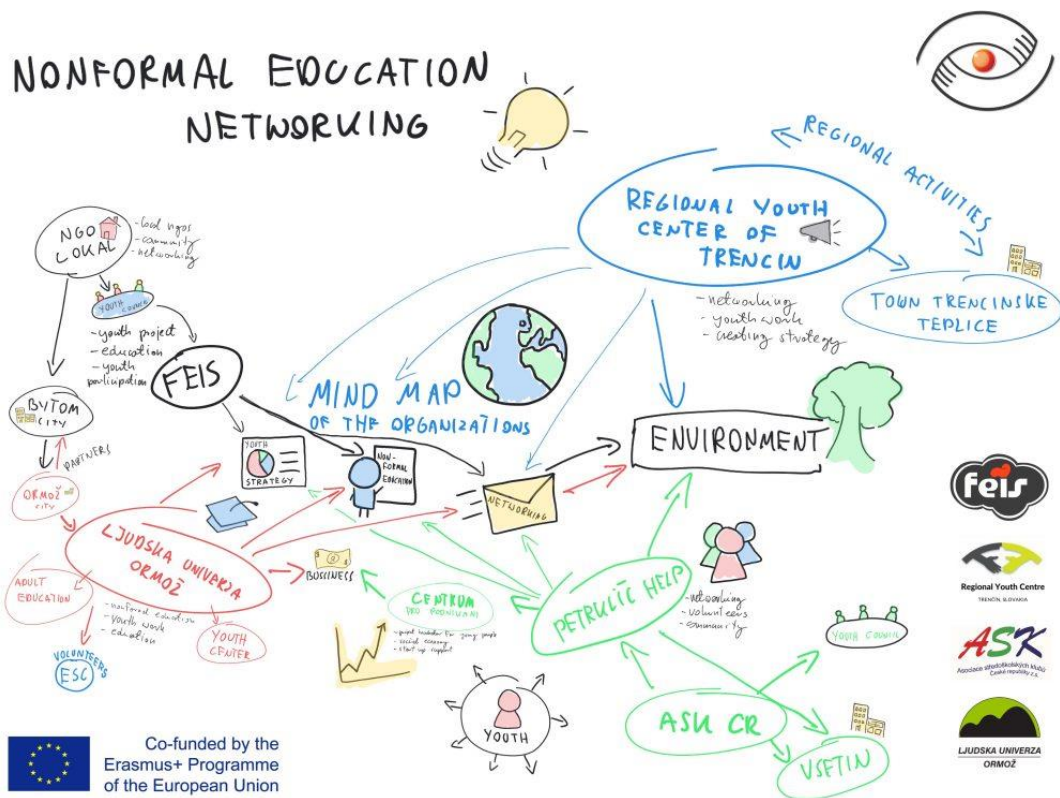 NONFORMAL EDUCATION
NETWORKING
REGIONAL ACTIVITIES
REGIONAL YOUTH
CENTER OF
TRENCIN
- networking
- youth work
- creating strategy
TOWN TRENCINSKE
TEPLICE
NGO
LOKAL
- local ngos
- community
- networking
YOUTH COUNCIL
- youth project
- education
- youth
participation
FEIS
MIND MAP
OF THE ORGANIZATIONS
BYTOM
CITY
PARTNERS
ORMOŽ
CITY
YOUTH
STRATEGY
NON-
FORMAL
EDUCATION
NETWORKING
ENVIRONMENT
LJUDSKA UNIVERZA
ORMOŽ
ADULT
EDUCATION
- nonformal education
- youth work
- education
YOUTH
CENTER
VOLUNTEERS
ESC
BUSSINESS
CENTRUM
PRO PODNIKANI
- social economy
- start up support
PETRKLIČ HELP
- networking
- volunteers
- community
YOUTH COUNCIL
YOUTH
ASK CR
VSETIN
feis
Regional Youth Centre
TRENČÍN, SLOVAKIA
ASK
Asociace středoškolských klubů
České republiky z.s.
LJUDSKA UNIVERZA
ORMOŽ
Co-funded by the
Erasmus+ Programme
of the European Union